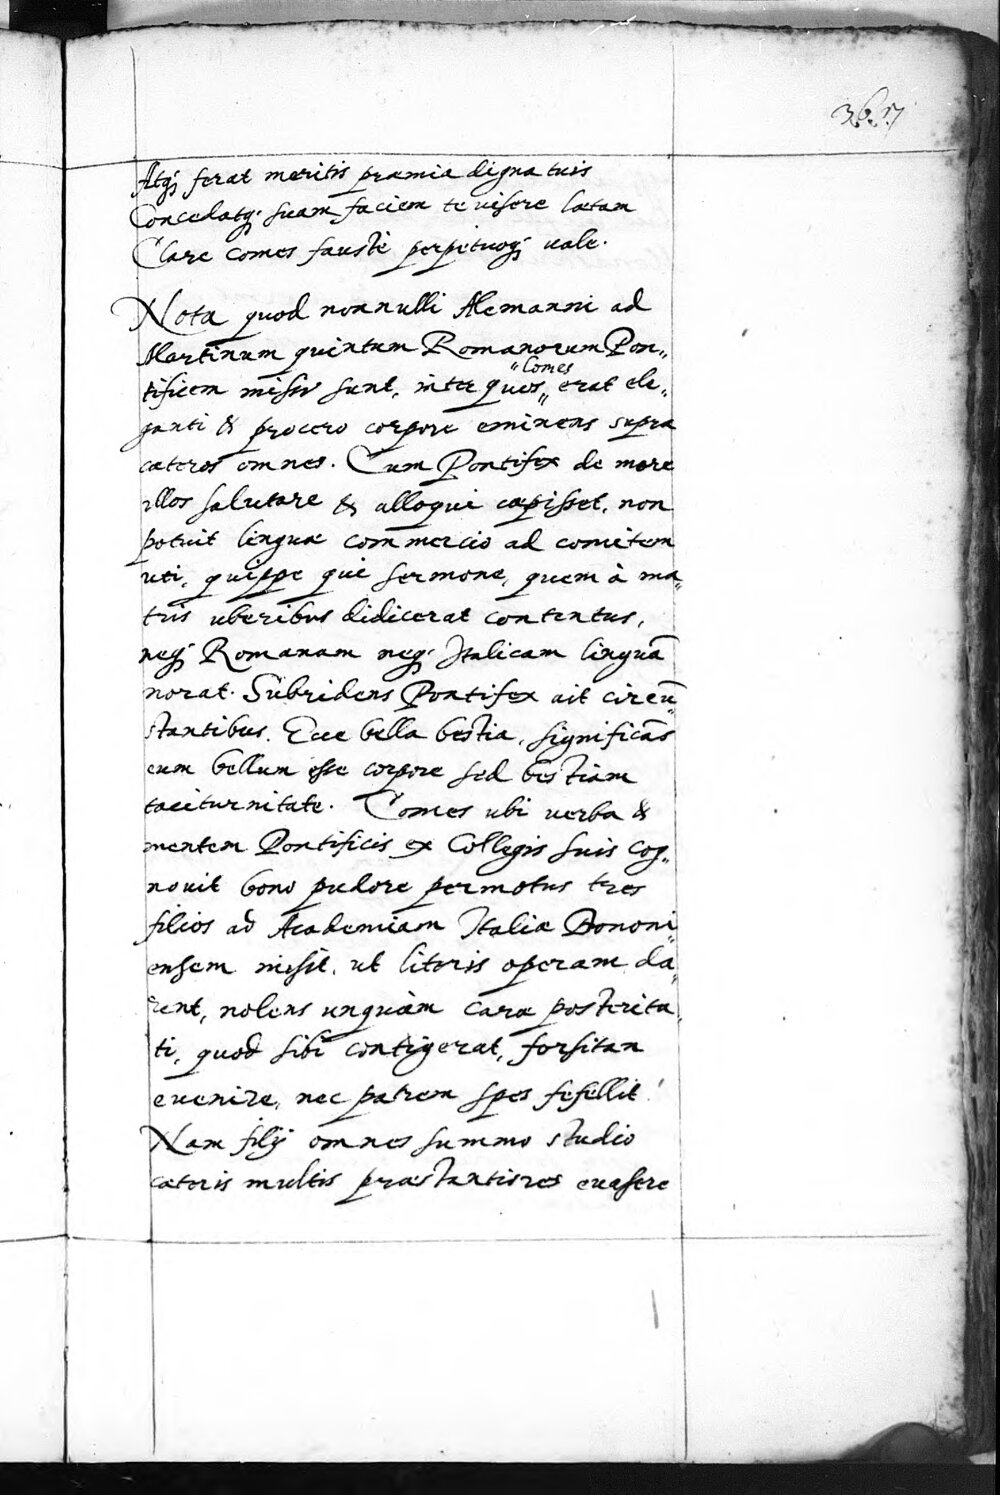 367
Atq; ferat meritis præmia digna tuis
Concedatq; suam faciem te visere lætam
Clare comes faustè perpetuoq; vale.
Nota quod nonnulli Alemanni ad
Martinum quintum Romanorum Pon„
tificem missi sunt, inter quos „Comes„ erat ele„
ganti & procero corpore eminens supra
cæteros omnes. Cum Pontifex de more
illos salutare & alloqui cæpisset, non
potuit linguæ commercio ad comitem
uti, quippe qui sermone, quem à ma„
tris uberibus didicerat contentus,
neq; Romanam neq; Italicam linguā
norat. Subridens Pontifex ait circū„
stantibus. Ecce bella bestia, significās
eum bellum esse corpore sed bestiam
taciturnitate. Comes ubi verba &
mentem Pontificis ex Collegis suis cog„
novit bono pudore permotus tres
filios ad Academiam Italiæ Bononi„
ensem misit, ut literis operam da„
rent, nolens unquàm caræ posterita„
ti, quod sibi contigerat, forsitan
evenire, nec patrem spes fefellit!
Nam filij omnes summo studio
cæteris multis præstantiores evasere